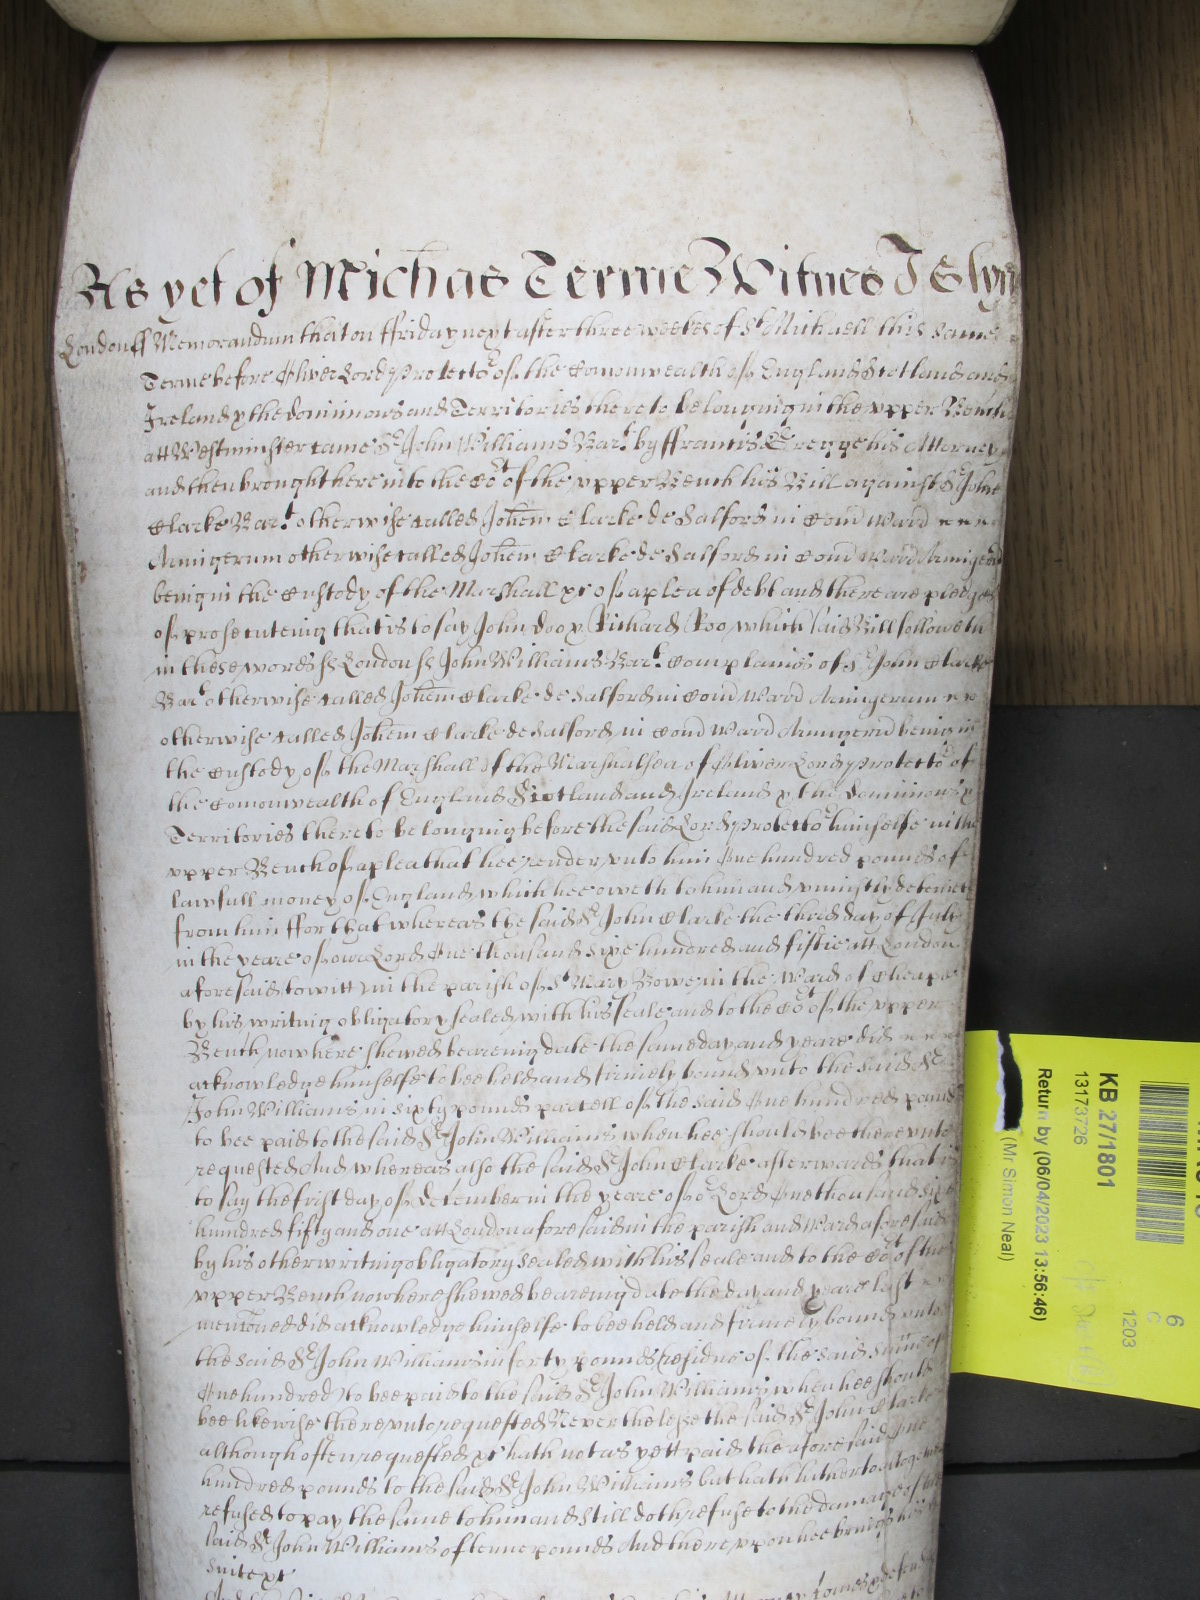 As yet of Michas Terme Witnes J Glyn
London ss Memorandum that on ffriday next after three weekes of St Michaell this same
Terme before Oliver Lord Protector of the Comonwealth of England Scotland and
Ireland & the dominions and Territories thereto belonging in the upper Bench
att Westminster came Sr John Williams Bart by ffrancis Gregge his Attorney
and then brought here into the Cot of the upper Bench his Bill against Sr John
Clarke Bart otherwise called Johem Clarke de Salford in Com Ward
Armigerum otherwise called Johem Clarke de Salford in Com Ward Armigerm
being in the Custody of the Marshall &c of a plea of debt and there are pledges
of prosecuteing that is to say John Doo & Richard Roo which said Bill followeth
in these words ss London ss John Williams Bart Complaines of Sr John Clarke
Bart otherwise called Johem Clarke de Salford in Com Ward Armigerum
otherwise called Johem Clarke de Salford in Com Ward Armigerm being in
the Custody of the Marshall of the Marshalsea of Oliver Lord Protector of
the Comonwealth of England Scotland and Ireland & the dominions &
Territories thereto belonging before the said Lord Protector himselfe in the
upper Bench of a plea that hee render unto him One hundred pounds of
lawfull money of England which hee oweth to him and uniustly deteineth
from him ffor that whereas the said Sr John Clarke the third day of July
in the yeare of our Lord One thousand sixe hundred and fiftie att London
aforesaid to witt in the parish of St Mary Bowe in the Ward of Cheape
by his writing obligatory sealed with his seale and to the Cot of the upper
Bench now here shewed beareing date the same day and yeare did
acknowledge himselfe to bee held and firmely bound unto the said Sr
John Williams in sixty pounds parcell of the said One hundred pounds
to bee paid to the said Sr John Williams when hee should bee thereunto
requested And whereas also the said Sr John Clarke afterwards that is
to say the first day of december in the yeare of or Lord One thousand sixe
hundred fifty and one att London aforesaid in the parish and Ward aforesaid
by his other writing obligatory sealed with his seale and to the Cot of the
upper Bench now here shewed beareing date the day and yeare last
mencioned did acknowledge himselfe to bee held and firmely bound unto
the said Sr John Williams in forty pounds residue of the said summe of
One hundred to bee paid to the said Sr John Williams when hee should
bee likewise thereunto requested Neverthelesse the said Sr John Clarke
although often requested &c hath not as yett paid the aforesaid One
hundred pounds to the said Sr John Williams but hath hitherto altogether
refused to pay the same to him and still doth refuse to the damage of the
said Sr John Williams of tenne pounds And thereupon hee brings his
suite &c
comes & defends
KB 27/1801
13173726
Return by (06/04/2023 13:56:46)
(Mr Simon Neal)
6
C
1203